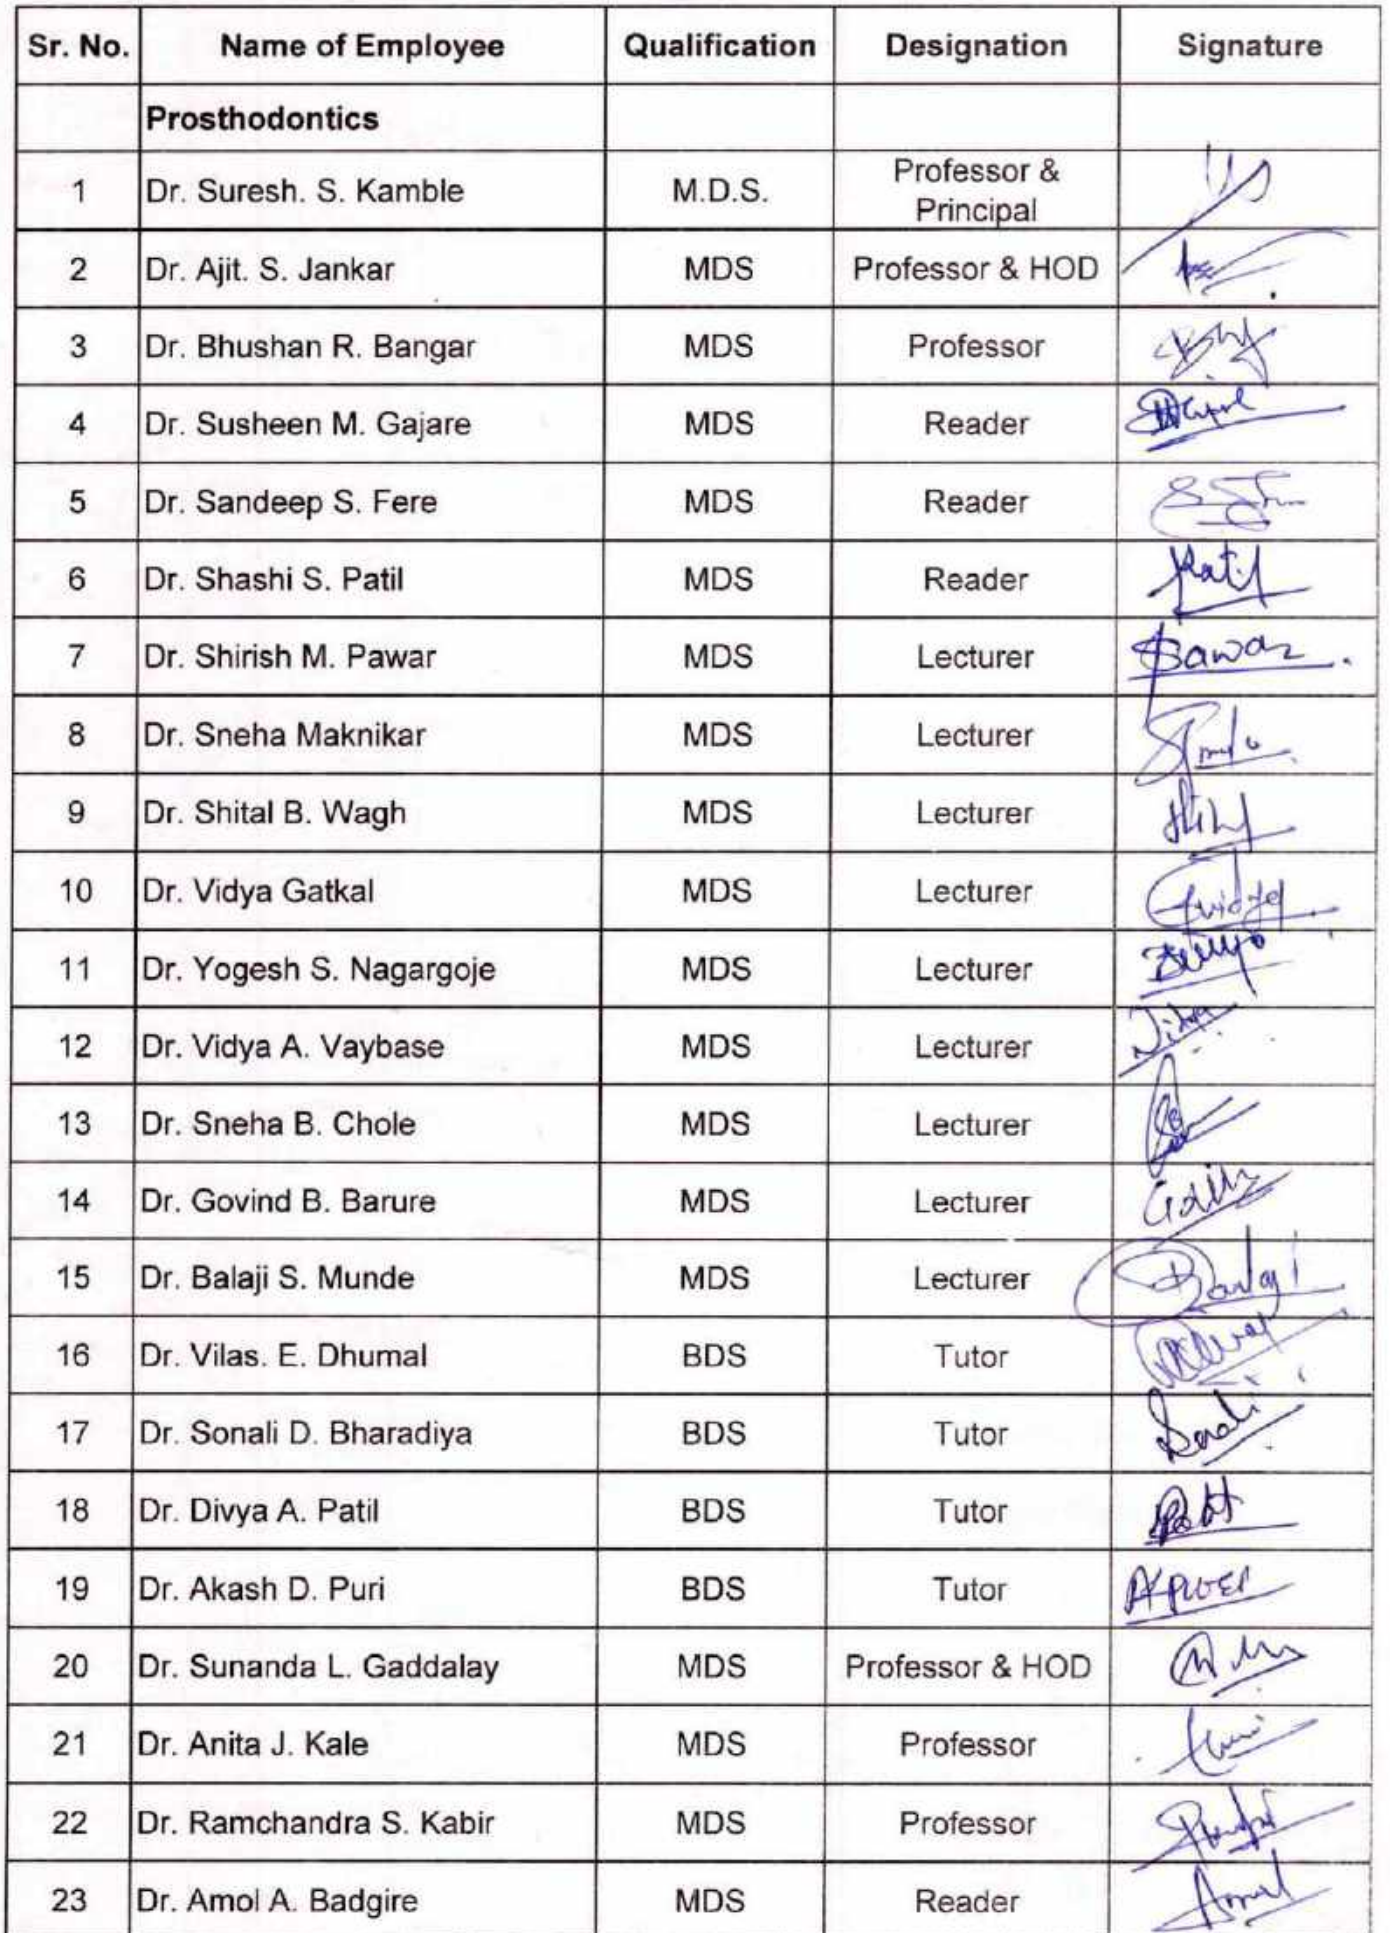 Sr. No. Name of Employee Qualification Designation Signature
Prosthodontics
1 Dr. Suresh. S. Kamble M.D.S. Professor & Principal
2 Dr. Ajit. S. Jankar MDS Professor & HOD
3 Dr. Bhushan R. Bangar MDS Professor
4 Dr. Susheen M. Gajare MDS Reader
5 Dr. Sandeep S. Fere MDS Reader
6 Dr. Shashi S. Patil MDS Reader Patil
7 Dr. Shirish M. Pawar MDS Lecturer Pawar
8 Dr. Sneha Maknikar MDS Lecturer
9 Dr. Shital B. Wagh MDS Lecturer
10 Dr. Vidya Gatkal MDS Lecturer
11 Dr. Yogesh S. Nagargoje MDS Lecturer
12 Dr. Vidya A. Vaybase MDS Lecturer
13 Dr. Sneha B. Chole MDS Lecturer
14 Dr. Govind B. Barure MDS Lecturer
15 Dr. Balaji S. Munde MDS Lecturer
16 Dr. Vilas. E. Dhumal BDS Tutor
17 Dr. Sonali D. Bharadiya BDS Tutor
18 Dr. Divya A. Patil BDS Tutor
19 Dr. Akash D. Puri BDS Tutor
20 Dr. Sunanda L. Gaddalay MDS Professor & HOD
21 Dr. Anita J. Kale MDS Professor
22 Dr. Ramchandra S. Kabir MDS Professor
23 Dr. Amol A. Badgire MDS Reader